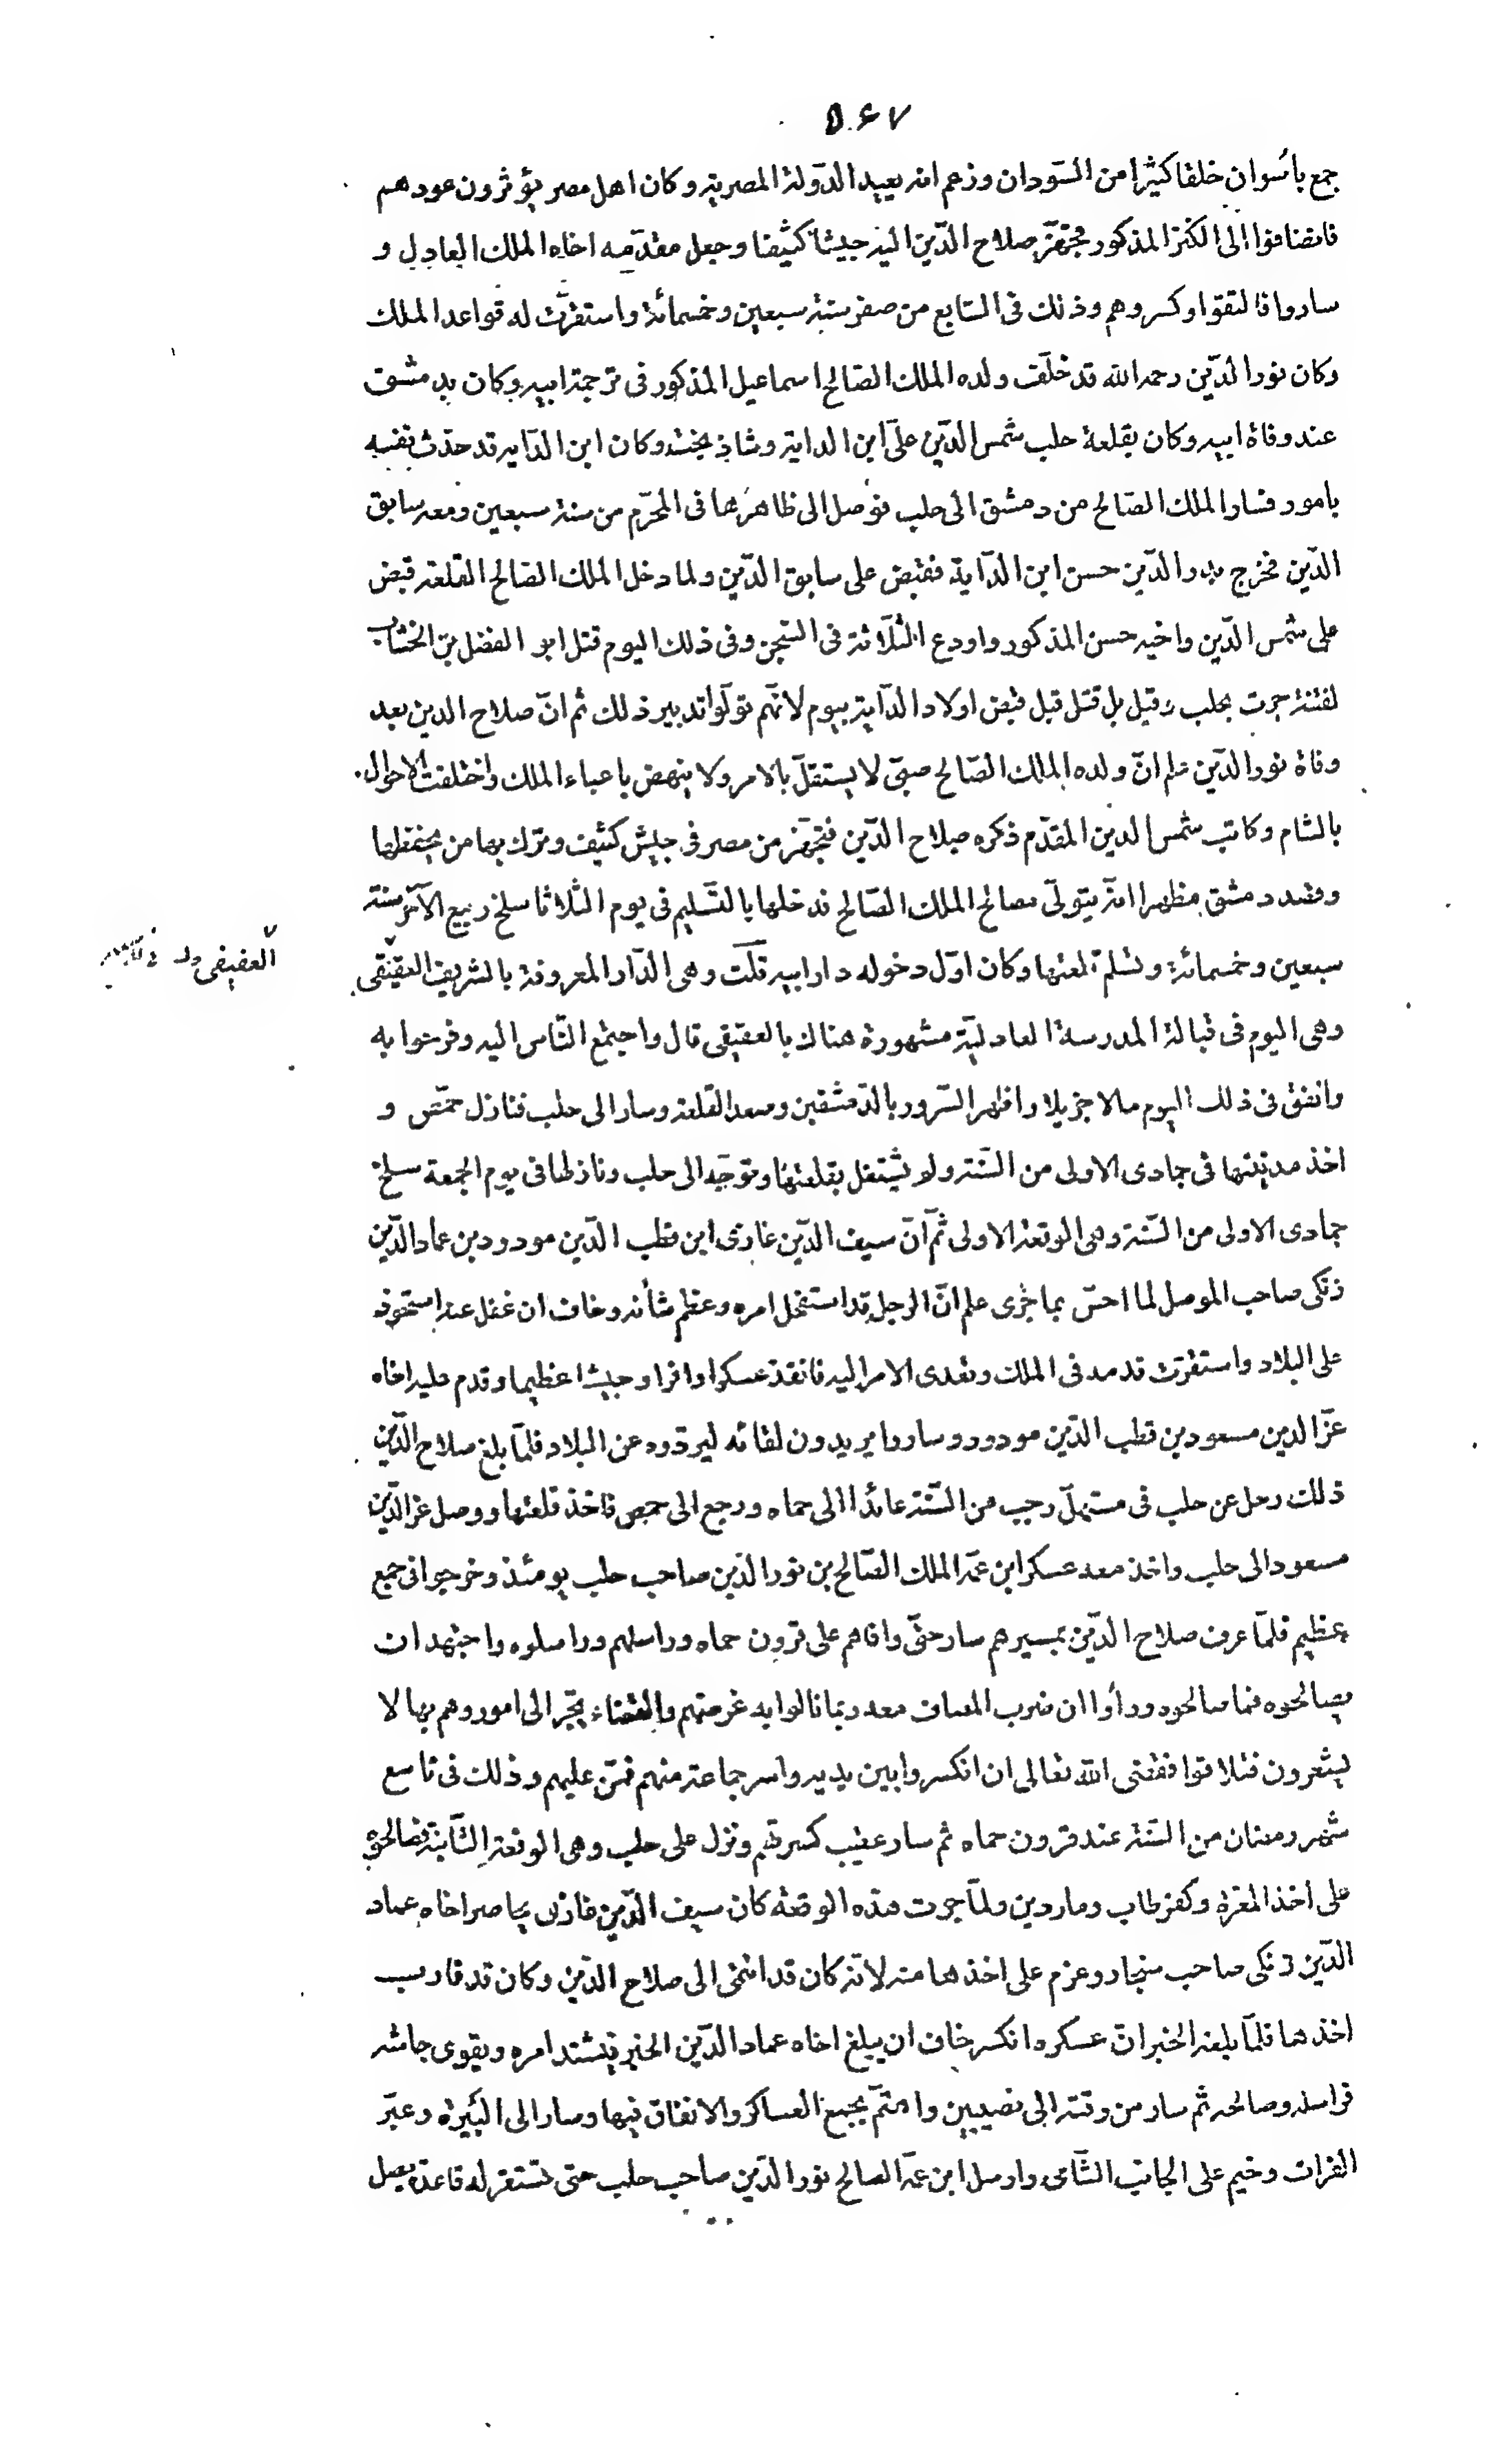 ٥٤٧
جمع باسوان خلقا كثيرا من السّودان وزعم انه يعيد الدّولة المصرية وكان اهل مصر يؤثرون عودهم
فانضافوا الى الكنز المذكور فجهّز صلاح الدّين اليه جيشا كثيفا وجعل مقدّمه اخاه الملك العادل و
ساروا فالتقوا وكسروهم وذلك فى السّابع من صفر سنة سبعين وخمسمائة واستقرّت له قواعد الملك
وكان نور الدّين رحمه الله قد خلّف ولده الملك الصّالح اسماعيل المذكور فى ترجمة ابيه وكان بدمشق
عند وفاة ابيه وكان بقلعة حلب شمس الدّين علىّ ابن الداية وشاذ بخت وكان ابن الدّايه قد حدّث نفسه
بامور فسار الملك الصّالح من دمشق الى حلب فوصل الى ظاهرها فى المحرّم من سنة سبعين ومعه سابق
الدّين فخرج بدر الدّين حسن ابن الدّاية فقبض على سابق الدّين ولما دخل الملك الصّالح القلعة قبض
على شمس الدّين واخيه حسن المذكور واودع الثلاثة فى السّجن وفى ذلك اليوم قتل ابو الفضل بن الخشاب
لفتنة جرت بحلب وقيل بل قتل قبل قبض اولاد الدّاية بيوم لانّهم تولّوا تدبير ذلك ثم انّ صلاح الدين بعد
وفاة نور الدّين علم انّ ولده الملك الصّالح صبىّ لا يستقلّ بالامر ولا ينهض باعباء الملك واختلفت الاحوال
بالشام وكاتب شمس الدين المقدّم ذكره صلاح الدّين فتجهّز من مصر فى جيش كثيف وترك بها من يحفظها
وقصد دمشق مظهرا انّه يتولّى مصالح الملك الصّالح فدخلها بالتّسليم فى يوم الثلاثا سلخ ربيع الآخر سنة
سبعين وخمسمائة وتسلّم قلعتها وكان اوّل دخوله دار ابيه قلت وهى الدّار المعروفة بالشريف العقيقى
العقيقى
وهى اليوم فى قبالة المدرسة العادليّة مشهورة هناك بالعقيقى قال واجتمع النّاس اليه وفرحوا به
وانفق فى ذلك اليوم مالا جزيلا واظهر السّرور بالدّمشقين وصعد القلعة وسار الى حلب فنازل حمص و
اخذ مدينتها فى جمادى الاولى من السّنة ولم يشتغل بقلعتها وتوجّه الى حلب ونازلها فى يوم الجمعة سلخ
جمادى الاولى من السّنة وهى الوقعة الاولى ثمّ انّ سيف الدّين غازى ابن قطب الدّين مودود بن عماد الدّين
زنكى صاحب الموصل لما احسّ بما جرى علم انّ الرجل قد استفحل امره وعظم شأنه وخاف ان غفل عنه استحوذ
على البلاد واستقرّت قدمه فى الملك وتعدى الامر اليه فانفذ عسكرا وافرا وجيشا عظيما وقدم عليه اخاه
عزّ الدين مسعود بن قطب الدّين مودود وساروا يريدون لقائه ليردّوه عن البلاد فلمّا بلغ صلاح الدّين
ذلك رحل عن حلب فى مستهلّ رجب من السّنة عائدا الى حماه ورجع الى حمص فاخذ قلعتها ووصل عز الدّين
مسعود الى حلب واخذ معه عسكر ابن عمّه الملك الصّالح بن نور الدّين صاحب حلب يومئذ وخرجوا فى جمع
عظيم فلمّا عرف صلاح الدّين بمسيرهم سار حتّى وافاهم على قرون حماه وراسلهم وراسلوه واجتهد ان
يصالحوه فما صالحوه ورأوا ان ضرب المصاف معه ربما نالوا به غرضهم والقضاء يجرّ الى امور وهم بها لا
يشعرون فتلاقوا فقضى الله تعالى ان انكسروا بين يديه واسر جماعة منهم فمنّ عليهم وذلك فى تاسع
شهر رمضان من السّنة عند قرون حماه ثم سار عقيب كسرتهم ونزل على حلب وهى الوقعة الثّانية فصالحوه
على اخذ المعرّة وكفر طاب وماردين ولمّا جرت هذه الوقعة كان سيف الدّين غازى يحاصر اخاه عماد
الدّين زنكى صاحب سنجار وعزم على اخذها منه لانه كان قد انتمى الى صلاح الدّين وكان قد قارب
اخذها فلمّا بلغه الخبر انّ عسكره انكسر خاف ان يبلغ اخاه عماد الدّين الخبر فيشتد امره ويقوى جاشه
فراسله وصالحه ثم سار من وقته الى نصيبين واهتمّ بجمع العساكر والانفاق فيها وسار الى البيرة وعبر
الفرات وخيم على الجانب الشّامى وارسل ابن عمّه الصالح نور الدّين صاحب حلب حتى تستقر له قاعدة يصل